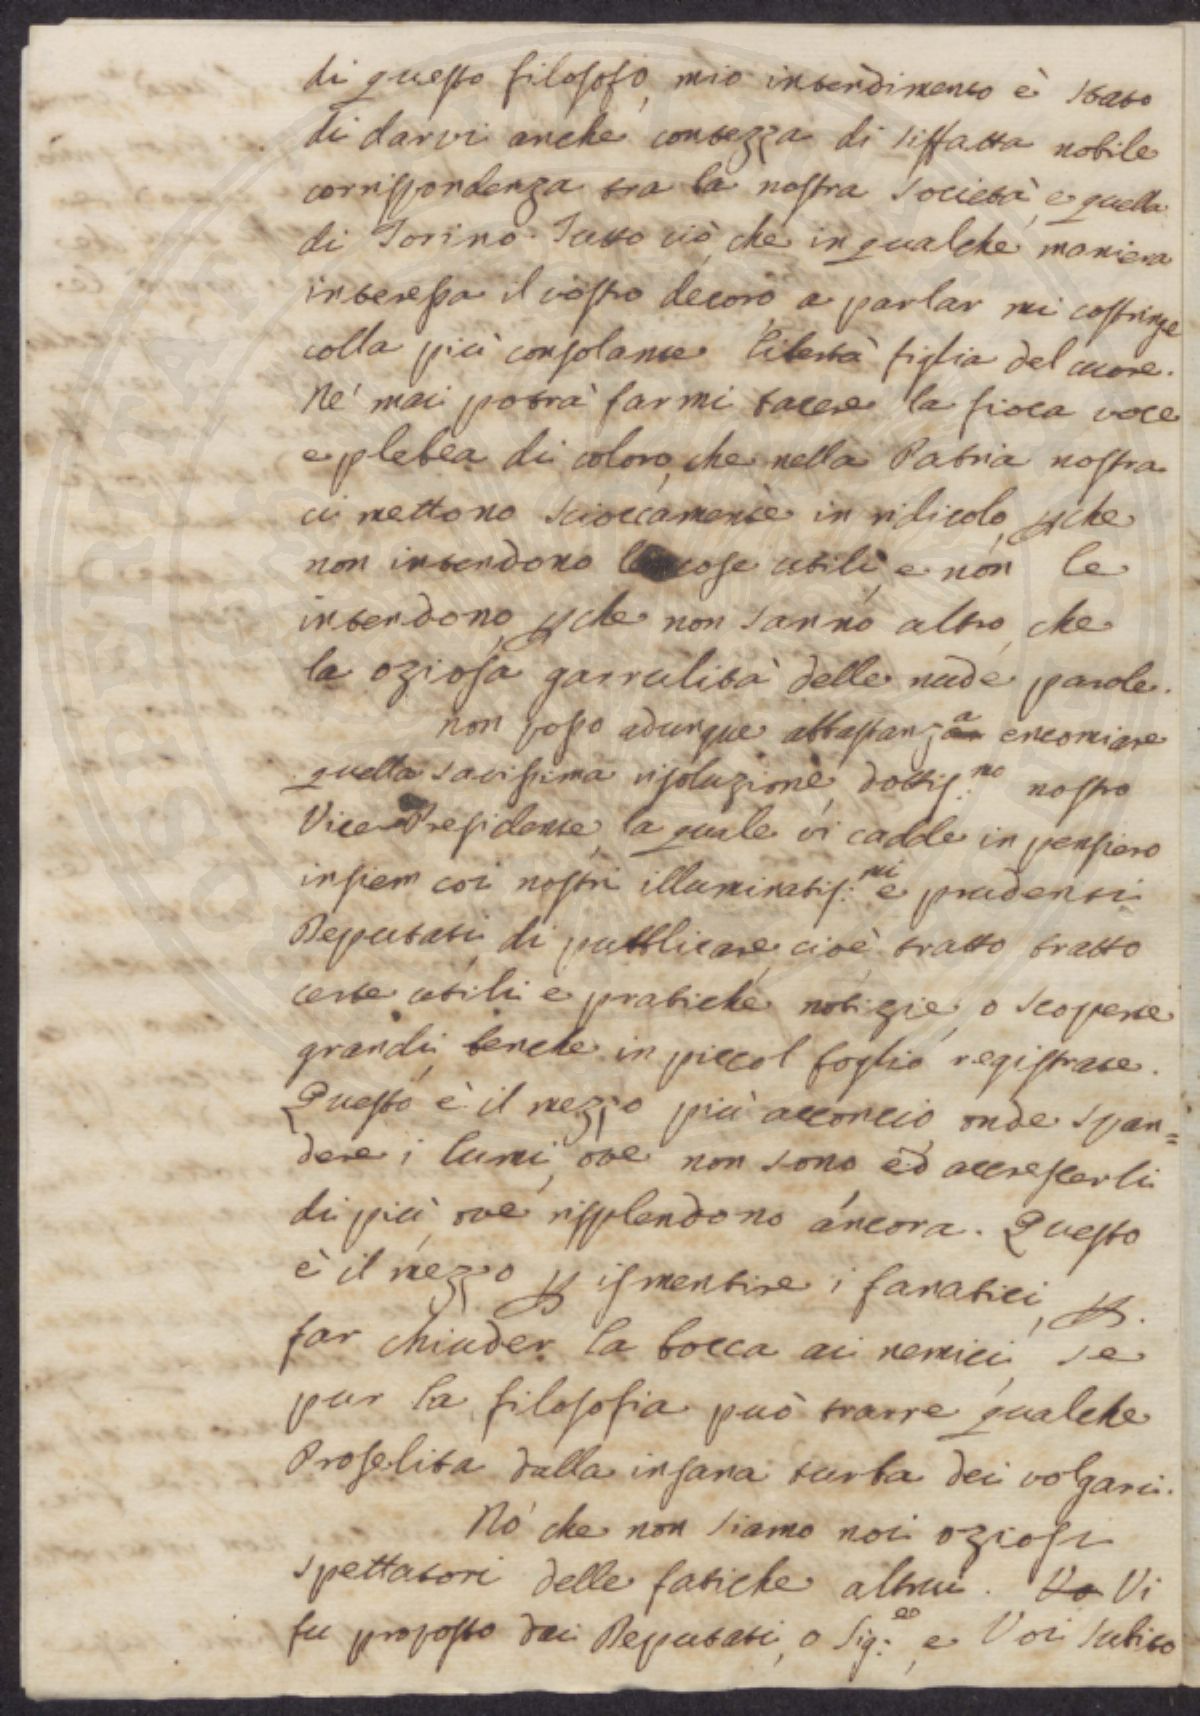 di questo filosofo, mio intendimento è stato
di darvi anche contezza di siffatta nobile
corrispondenza tra la nostra Società, e quella
di Torino. Tutto ciò, che in qualche maniera
interessa il vostro decoro, a parlar mi costringe
colla più consolante libertà figlia del cuore.
Né mai potrà farmi tacere la fioca voce
e plebea di coloro, che nella Patria nostra
ci mettono scioccamente in ridicolo, pche
non intendono le cose utili, e non le
intendono, pche non sanno altro, che
la oziosa garrulità delle nude parole.
Non posso adunque abbastanza encomiare
quella savissima risoluzione dottis:mo nostro
Vice-Presidente, la quale vi cadde in pensiero
insiem coi nostri illuminatis:mi e prudenti
Deputati, di pubblicare, cioè, tratto tratto
certe utili e pratiche notizie, o scoperte
grandi, benche in piccol foglio registrate.
Questo è il mezzo più acconcio, onde span=
dere i lumi, ove non sono, ed accrescerli
di più, ove risplendono ancora. Questo
è il mezzo p ismentire i fanatici, p
far chiuder la bocca ai nemici, se
pur la filosofia può trarre qualche
Proselita dalla insana turba dei volgari.
Nò che non siamo noi oziosi
spettatori delle fatiche altrui. Vo Vi
fu proposto dai Deputati, o Sig:, e Voi subito